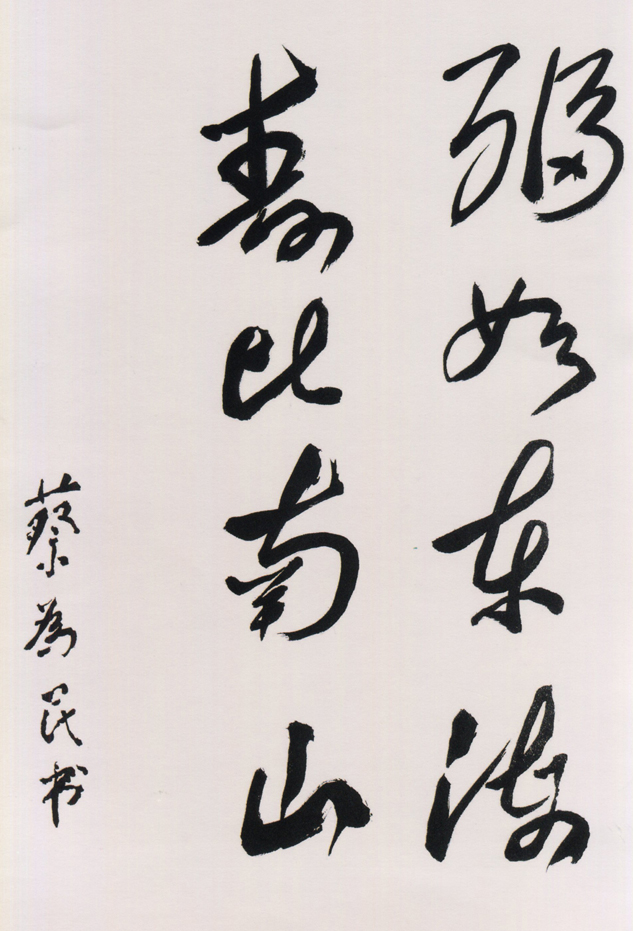 福如东海
寿比南山
蔡为民书